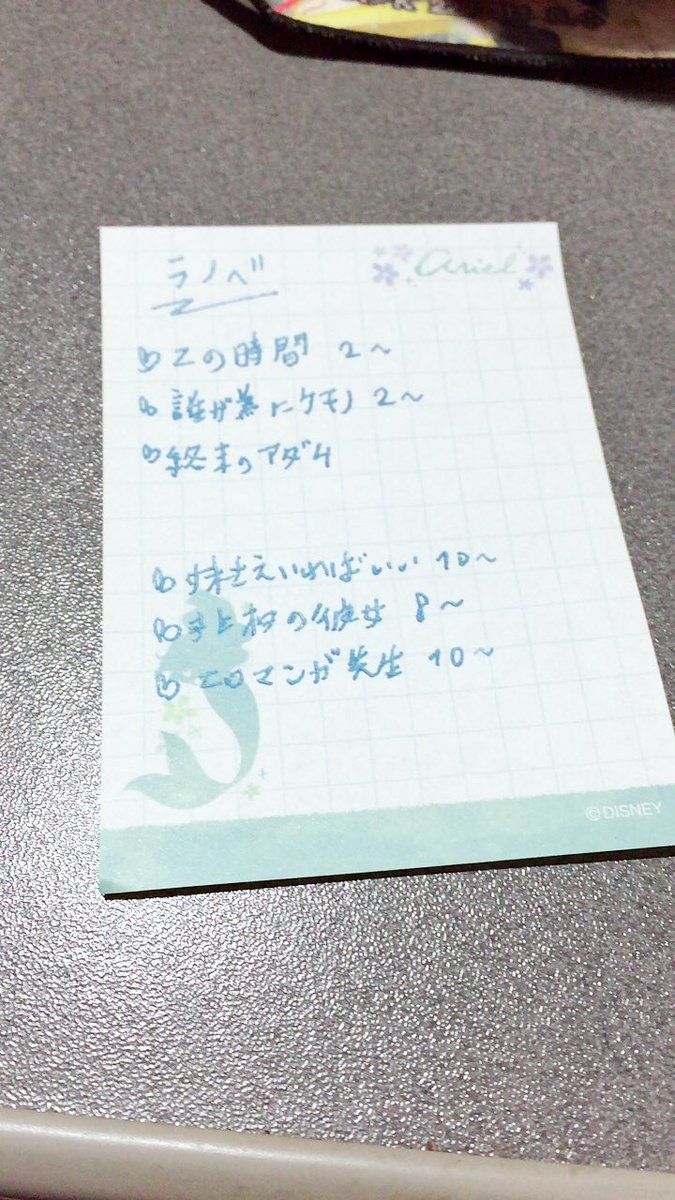 ariel
ラノベ
Zの時間 2～
誰が為にケモノ 2～
終末のアダム
妹さえいればいい 10～
の彼女 8～
エロマンガ先生 10～
©DISNEY